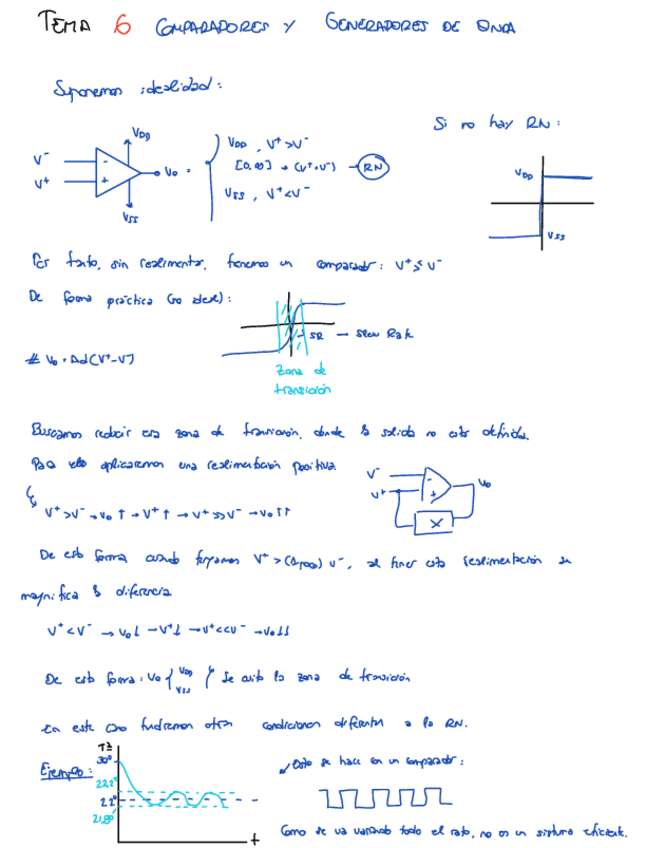 TEMA 6 COMPARADORES Y GENERADORES DE ONDA
Suponemos idealidad:
Si no hay RN:
VDD
V⁻
V⁺
-
+
Vo =
VSS
VDD , V⁺>V⁻
[0,∞] → (V⁺-V⁻) → RN
VSS , V⁺<V⁻
VDD
VSS
Por tanto, sin realimentar, tenemos un comparador: V⁺≶V⁻
De forma práctica (no ideal):
SR → Slew Rate
# Vo = Ad(V⁺-V⁻)
Zona de
transición
Buscamos reducir esa zona de transición, donde la salida no está definida.
Para ello aplicaremos una realimentación positiva
V⁻
V⁺
-
+
Vo
X
V⁺>V⁻ → Vo↑ → V⁺↑ → V⁺>>V⁻ → Vo↑↑
De esta forma cuando tengamos V⁺ > V⁻, al tener esta realimentación se
magnifica la diferencia
V⁺<V⁻ → Vo↓ → V⁺↓ → V⁺<<V⁻ → Vo↓↓
De esta forma: Vo { VDD VSS } Se evita la zona de transición
En este caso tendremos otras condiciones diferentes a la RN.
Ejemplo:
Tª
30º
22º
t
Esto se hace con un comparador:
Como se va variando todo el rato, no es un sistema eficiente.